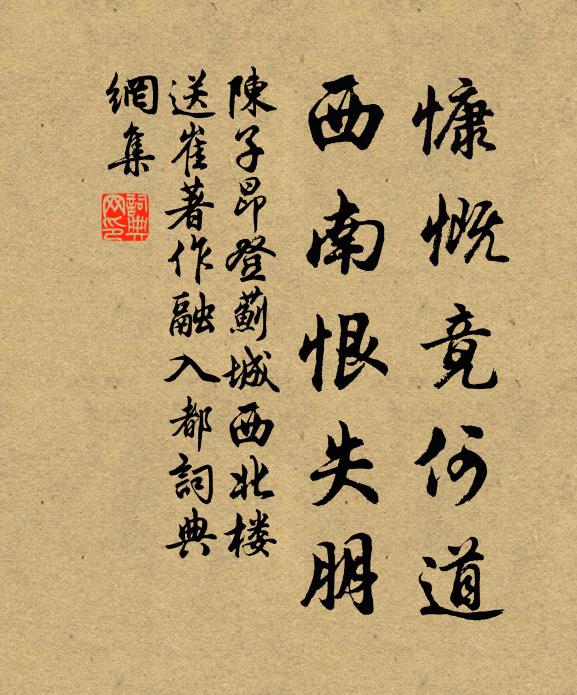 慷慨竟何道
西南恨失朋
陳子昂登薊城西北楼
送崔著作融入都詞典
網集
詞典
网印